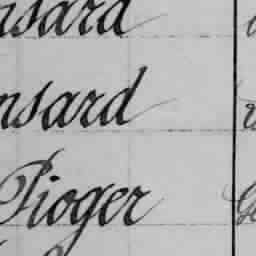 nsard
nsard
Pioger